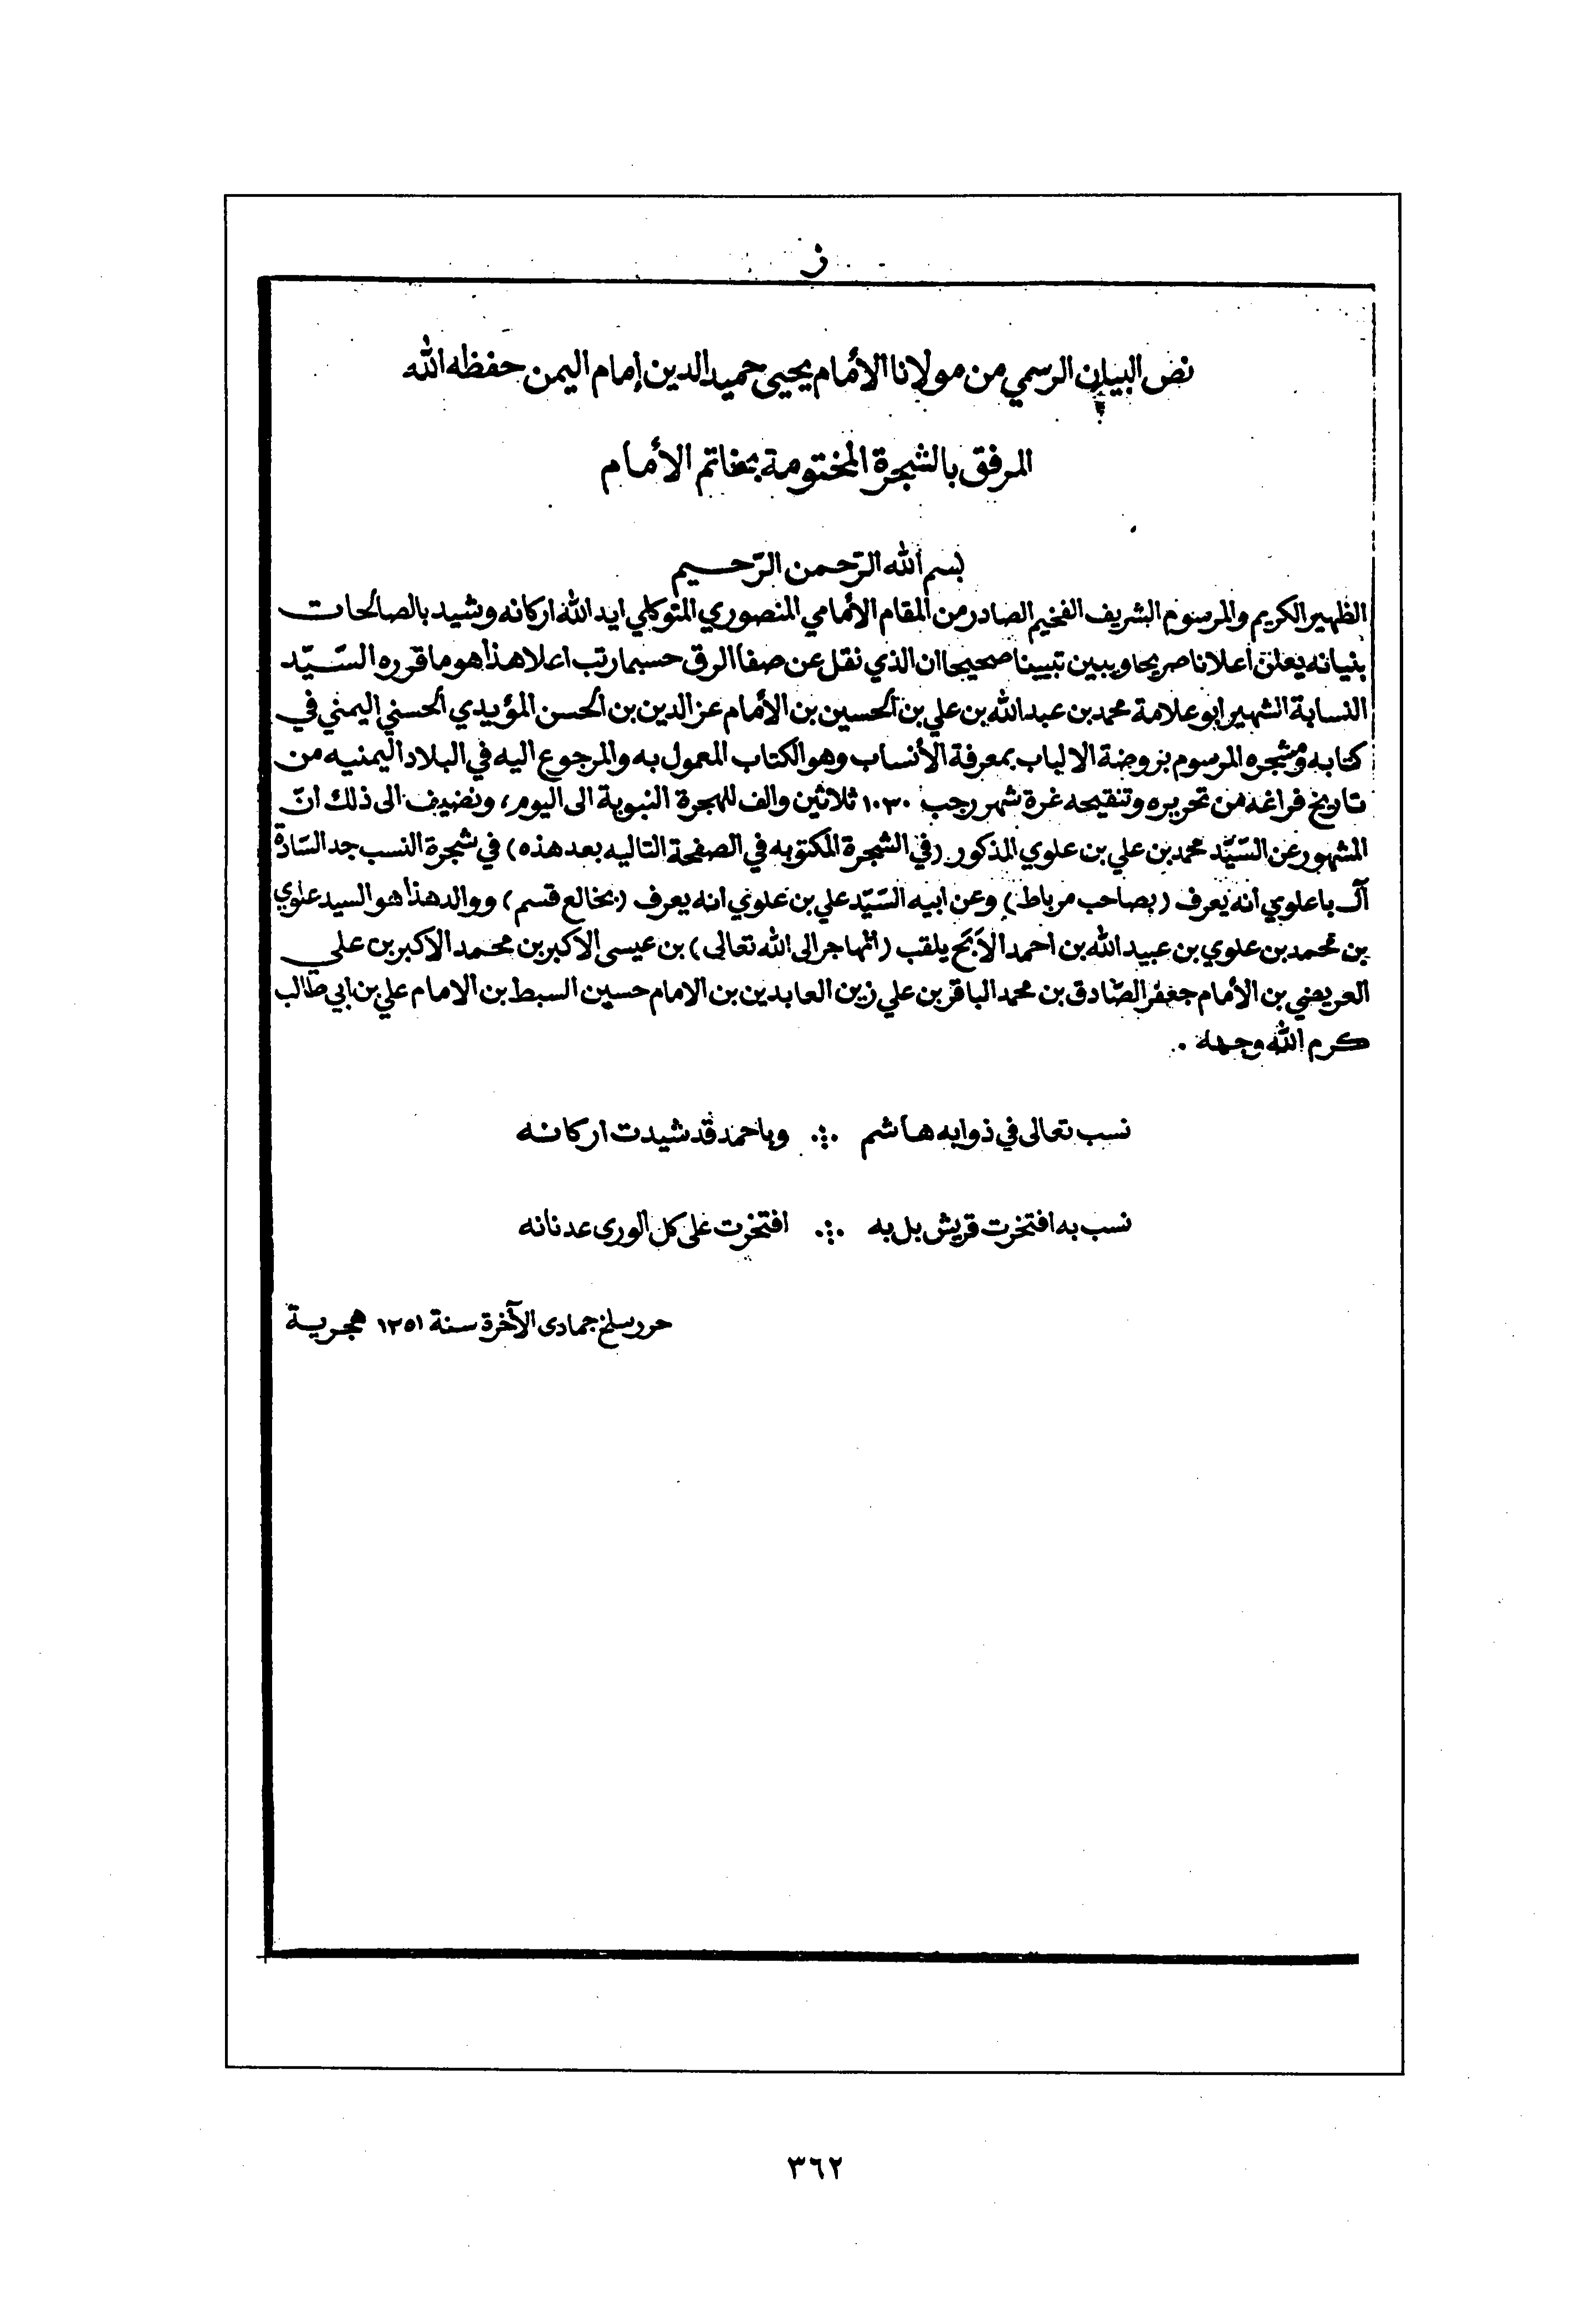 ز
نص البيان الرسمي من مولانا الأمام يحيى حميد الدين إمام اليمن حفظه الله
المرفق بالشجرة المختومة بخاتم الأمام
بسم الله الرّحمن الرّحيم
الظهير الكريم والمرسوم الشريف الفخيم الصادر من المقام الأمامي المنصوري المتوكلي ايد الله اركانه وشيد بالصالحات
بنيانه يعلن أعلانا صريحا ويبين تبيينا صحيحا ان الذي نقل عن صفا الرق حسبما رتب اعلا هذا هو ما قرره السّيّد
النسابة الشهير ابو علامة محمد بن عبد الله بن علي بن الحسين بن الأمام عز الدين بن الحسن المؤيدي الحسني اليمني في
كتابه ومشجره المرسوم بروضة الالباب بمعرفة الأنساب وهو الكتاب المعمول به والمرجوع اليه في البلاد اليمنيه من
تاريخ فراغه من تحريره وتنقيحه غرة شهر رجب ١٠٣٠ ثلاثين والف للهجرة النبوية الى اليوم، ونضيف الى ذلك انّ
المشهور عن السّيّد محمد بن علي بن علوي المذكور (في الشجرة المكتوبه في الصفحة التاليه بعد هذه) في شجرة النسب جد السّادة
آل باعلوي انه يعرف (بصاحب مرباط) وعن ابيه السّيّد علي بن علوي انه يعرف (بخالع قسم) ووالد هذا هو السيد علوي
بن محمد بن علوي بن عبيد الله بن احمد الأبح يلقب (المهاجر الى الله تعالى) بن عيسى الاكبر بن محمد الاكبر بن علي
العريضي بن الأمام جعفر الصّادق بن محمد الباقر بن علي زين العابدين بن الامام حسين السبط بن الامام علي بن ابي طالب
كرم الله وجهه .
نسب تعالى في ذوابه هاشم ∴ وباحمد قد شيدت اركانه
نسب به افتخرت قريش بل به ∴ افتخرت على كل الورى عدنانه
حرر سلخ جمادى الآخرة سنة ١٣٥١ هجرية
٣٦٢